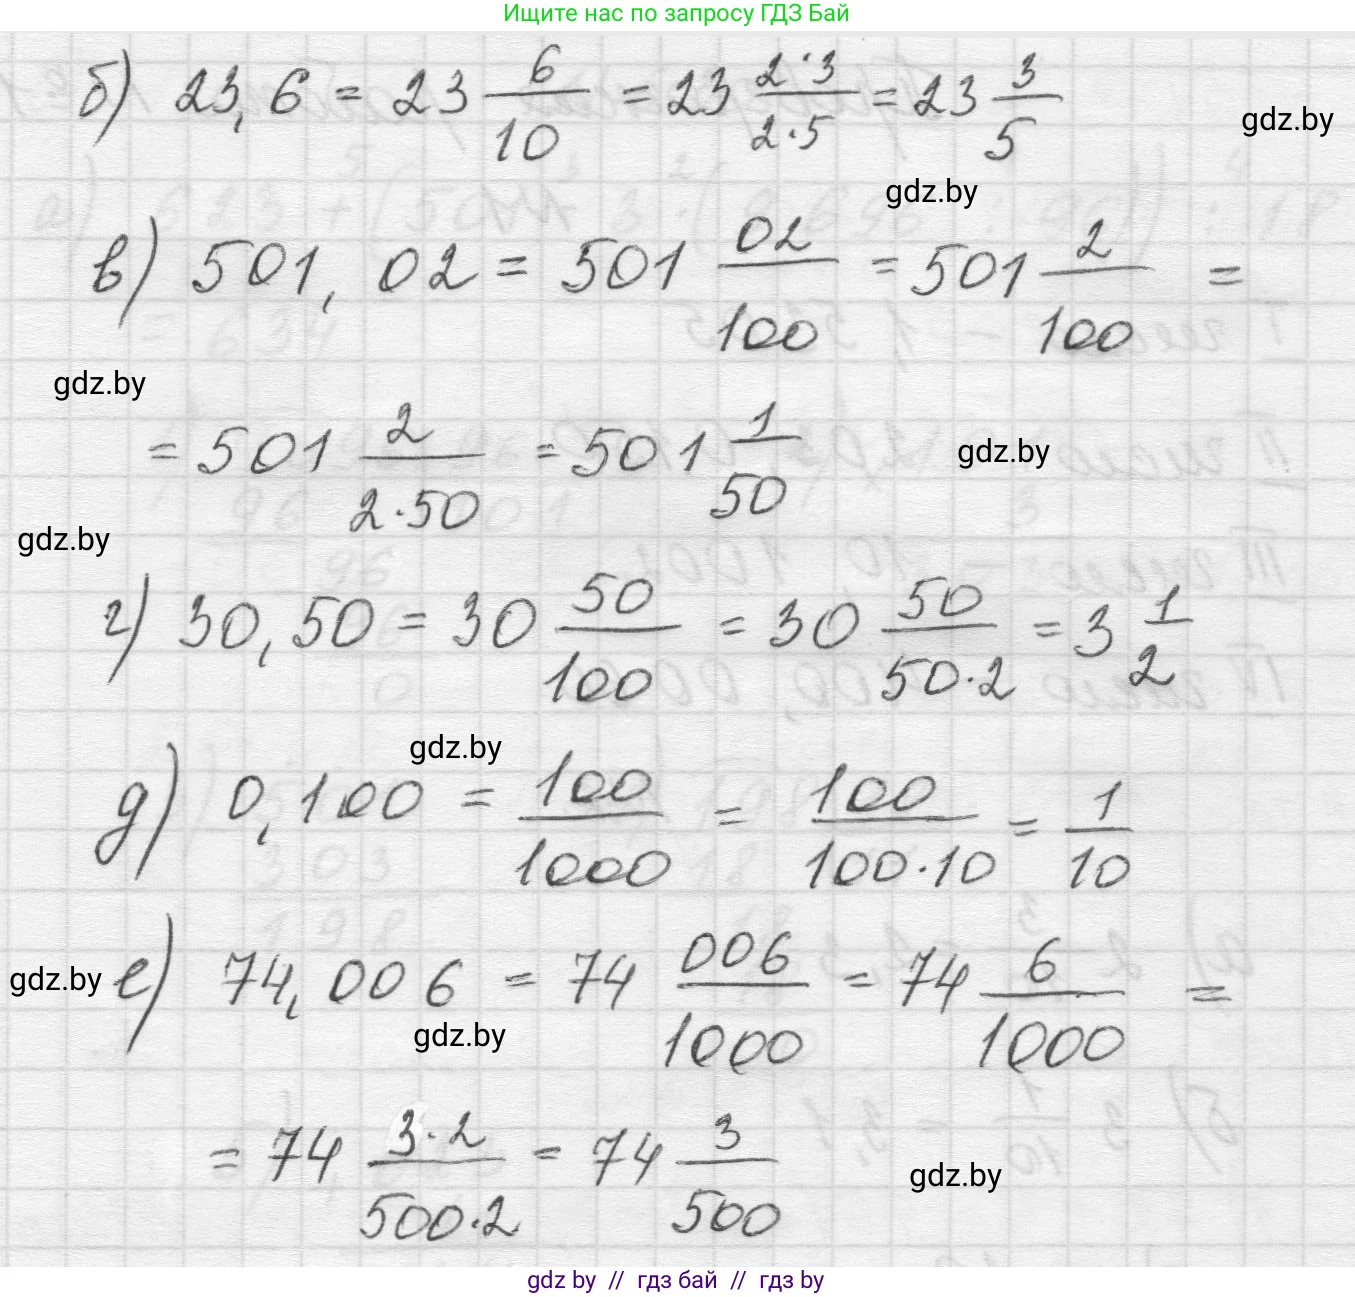 Ищите нас по запросу ГДЗ Бай
б) 23,6 = 23 6/10 = 23 2·3/2·5 = 23 3/5
gdz.by
gdz.by
в) 501,02 = 501 02/100 = 501 2/100 =
gdz.by
= 501 2/2·50 = 501 1/50
gdz.by
gdz.by
г) 30,50 = 30 50/100 = 30 50/50·2 = 3 1/2
gdz.by
д) 0,100 = 100/1000 = 100/100·10 = 1/10
gdz.by
е) 74,006 = 74 006/1000 = 74 6/1000 =
gdz.by
= 74 3·2/500·2 = 74 3/500
gdz.by
gdz by // гдз бай // гдз by